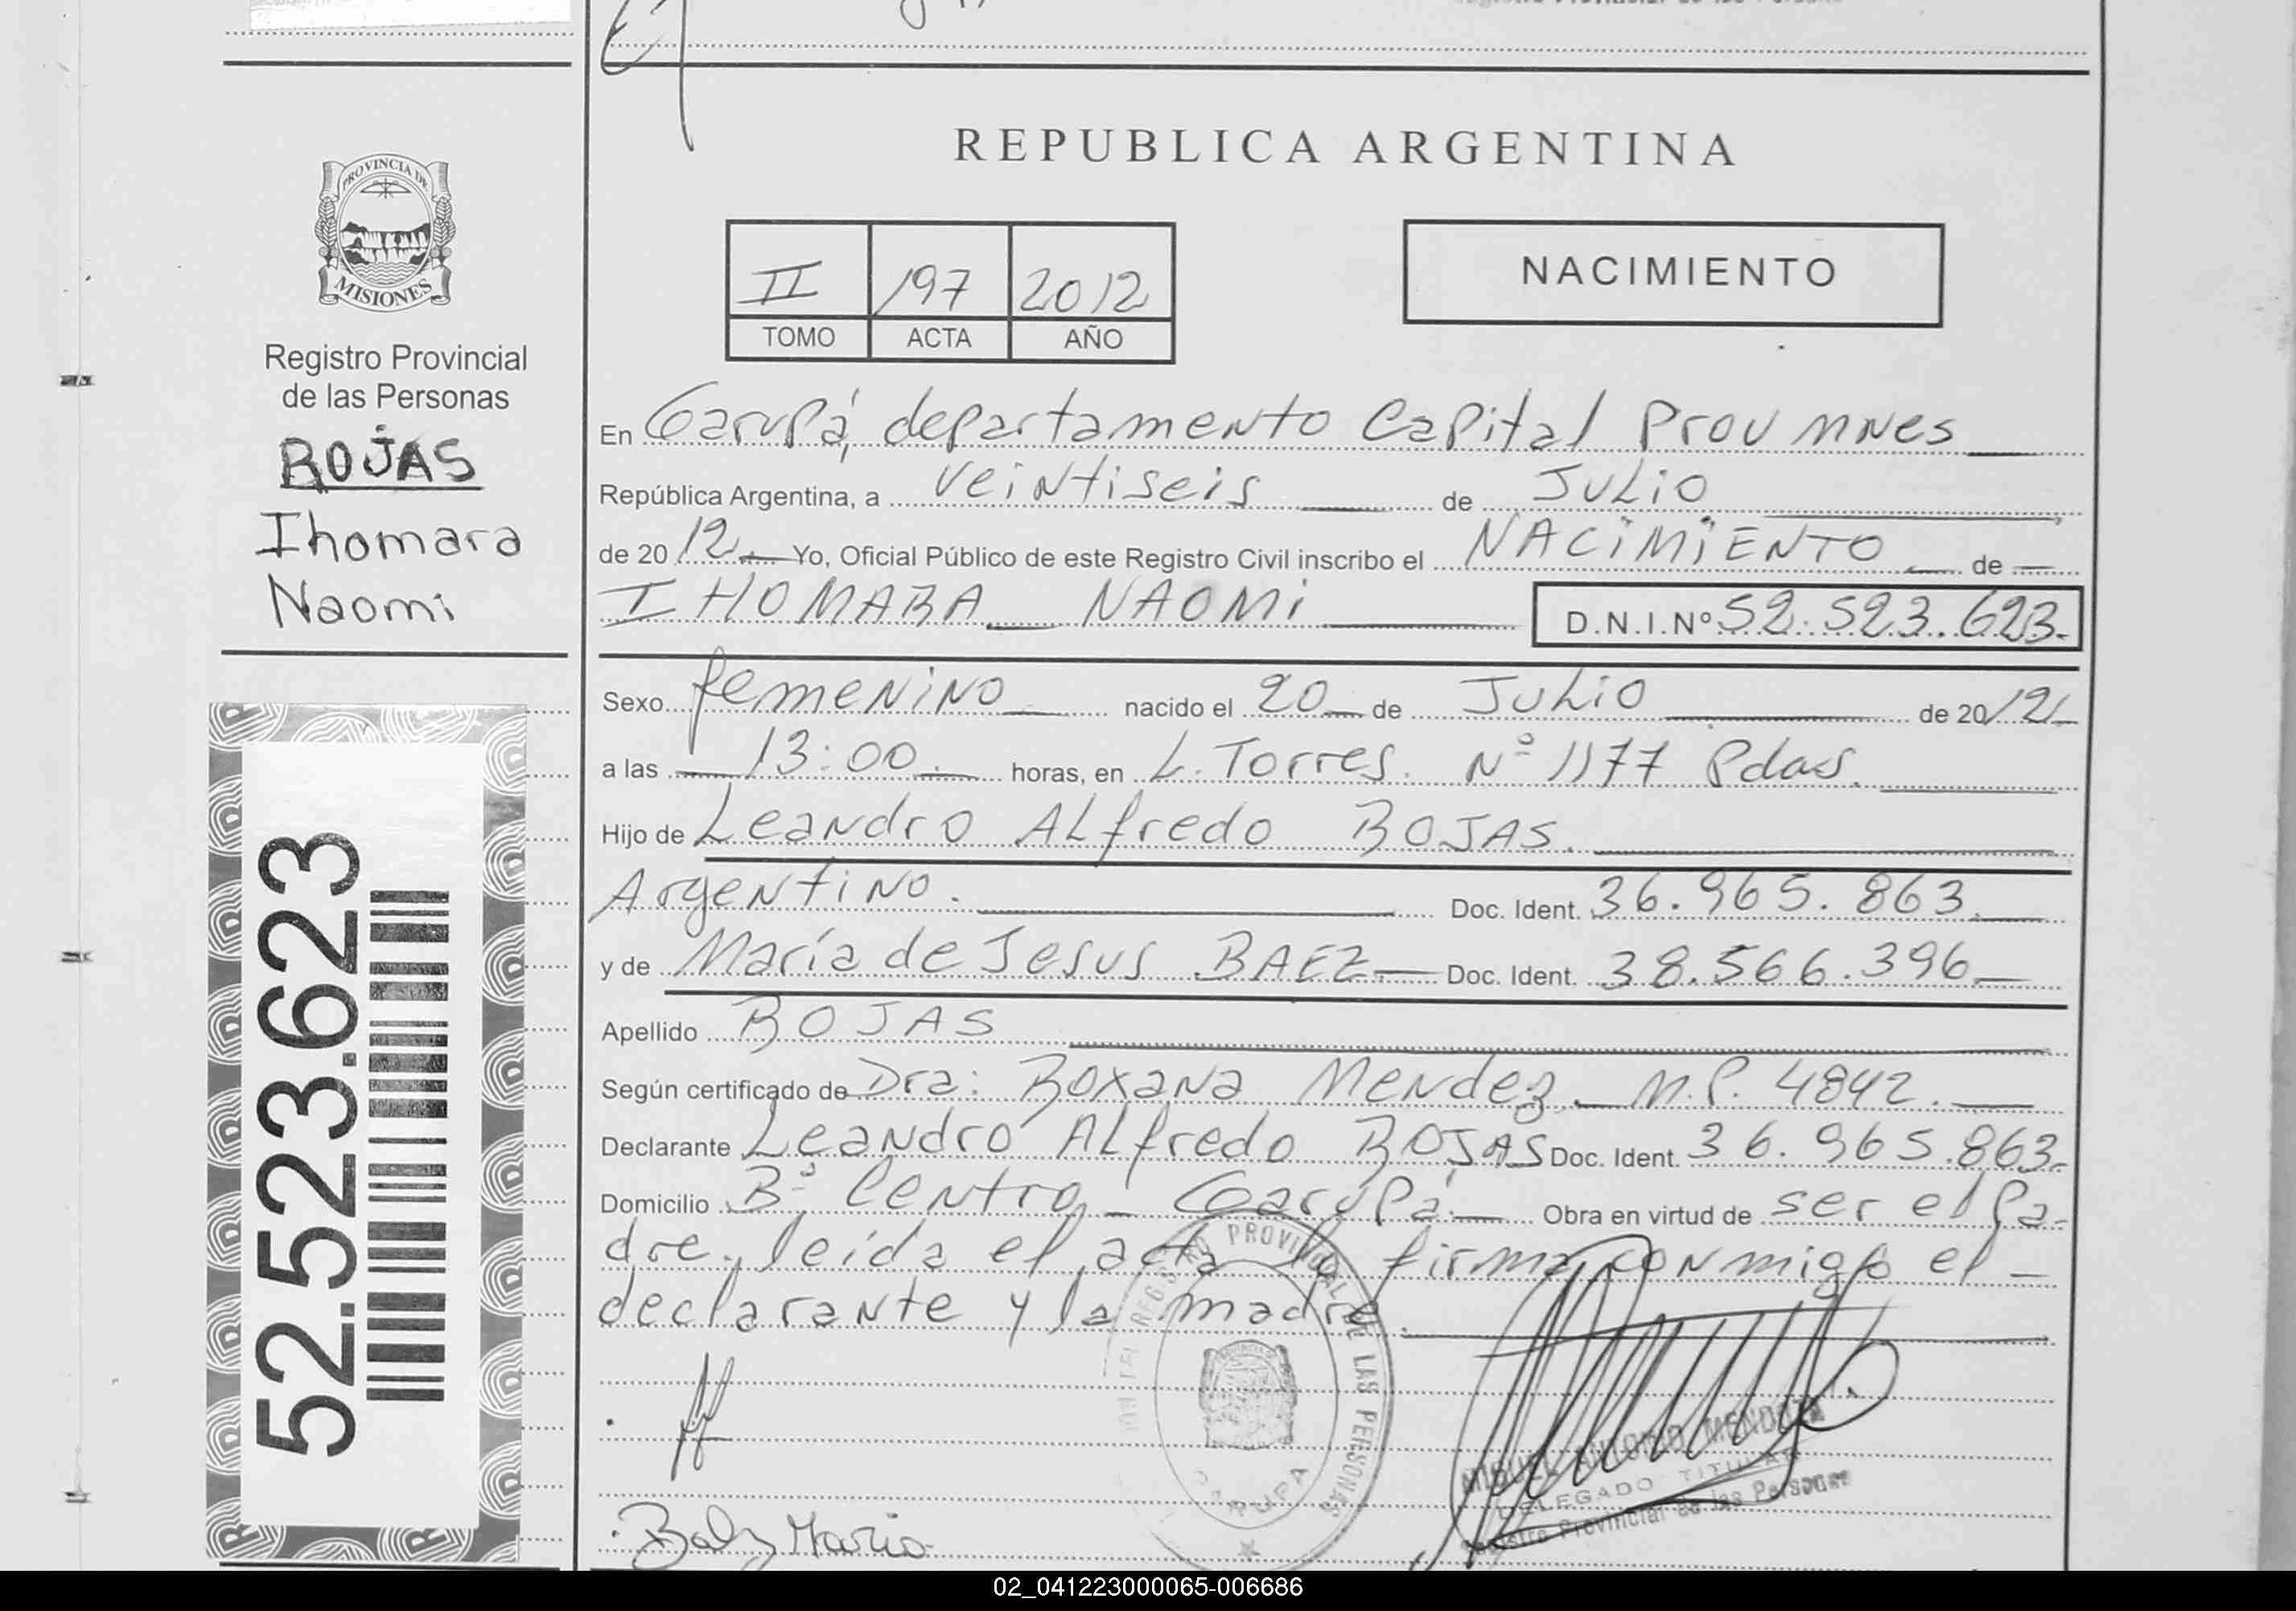 REPUBLICA ARGENTINA
PROVINCIA DE
MISIONES
Registro Provincial
de las Personas
ROJAS
Ihomara
Naomi
52.523.623
II 197 2012
TOMO ACTA AÑO
NACIMIENTO
En Garupá, departamento Capital Prov Mnes
República Argentina, a veintiseis de Julio
de 2012 Yo, Oficial Público de este Registro Civil inscribo el NACIMIENTO de
IHOMARA NAOMI D.N.I.Nº 52.523.623.
Sexo femenino nacido el 20 de Julio de 2012
a las 13:00. horas, en L. Torres. Nº 1177 Pdas.
Hijo de Leandro Alfredo ROJAS.
Argentino. Doc. Ident. 36.965.863.
y de María de Jesus BAEZ Doc. Ident. 38.566.396
Apellido ROJAS
Según certificado de Dra: Roxana Mendez M.P. 4842.
Declarante Leandro Alfredo ROJAS Doc. Ident. 36.965.863.
Domicilio Bº Centro - Garupá. Obra en virtud de ser el Pa-
dre, leida el acta la firma conmigo el
declarante y la madre.
REGISTRO PROVINCIAL DE LAS PERSONAS
GARUPA
MIGUEL ANTONIO MENDOZA
DELEGADO TITULAR
Registro Provincial de las Personas
Maria
02_041223000065-006686